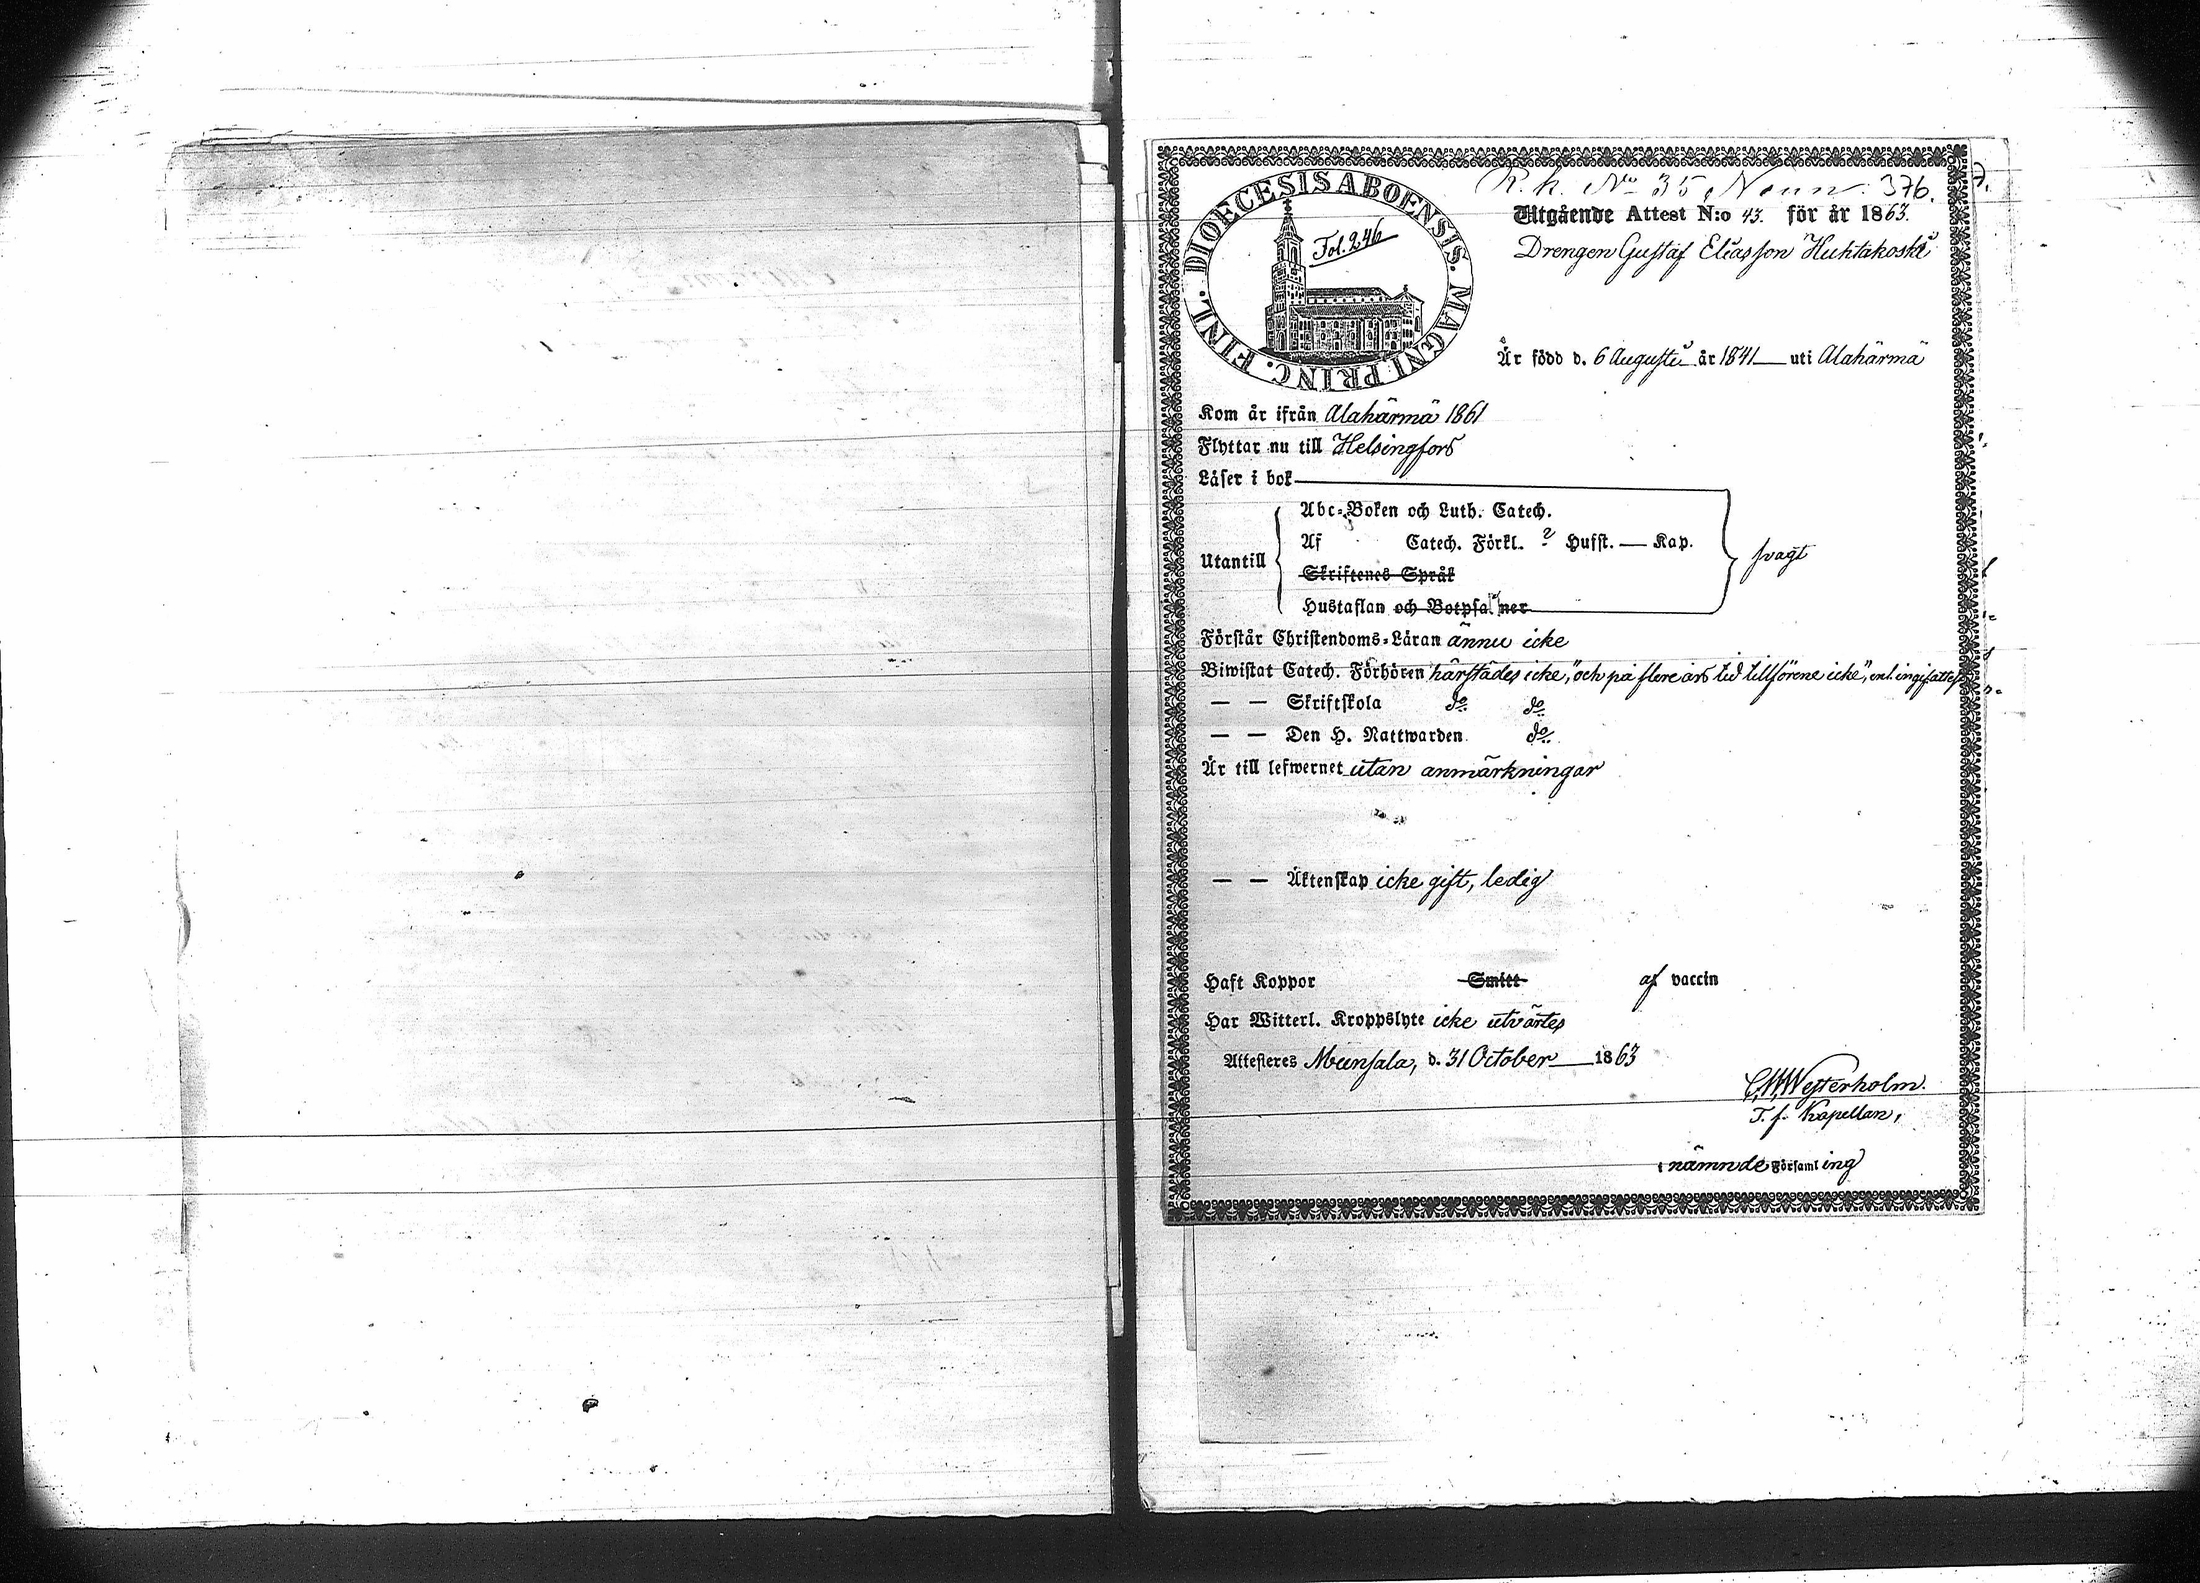 R. k. No 35 Nunn: 376.
DIOECESIS ABOENSIS. MAGNI PRINC. FINL.
Fol. 246
Utgående Attest N:o 43. för år 1863.
Drengen Gustaf Eliasson Huhtakoski
Är född d. 6 Augusti år 1841 — uti Alahärmä
Kom år ifrån Alahärmä 1861
Flyttar nu till Helsingfors
Läser i bok
Abc-Boken och Luth. Catech.
Af Catech. Förkl. 2 Husst. — Kap.
Utantill svagt
Skriftenes Språk
Hustaflan och Botpsalmer
Förstår Christendoms-Läran ännu icke
Biwistat Catech. Förhören härstädes icke, "och på flere års tid tillförene icke", enl. ingif. attest
— — Skriftskola do do
— — Den H. Nattwarden do
Är till lefwernet utan anmärkningar
— — Äktenskap icke gift, ledig
Haft Koppor Smitt af vaccin
Har Witterl. Kroppslyte icke utvärtes
Attesteres Munsala, d. 31 October — 1863
C,W,Westerholm.
T. f. Kapellan,
i nämnde Församling